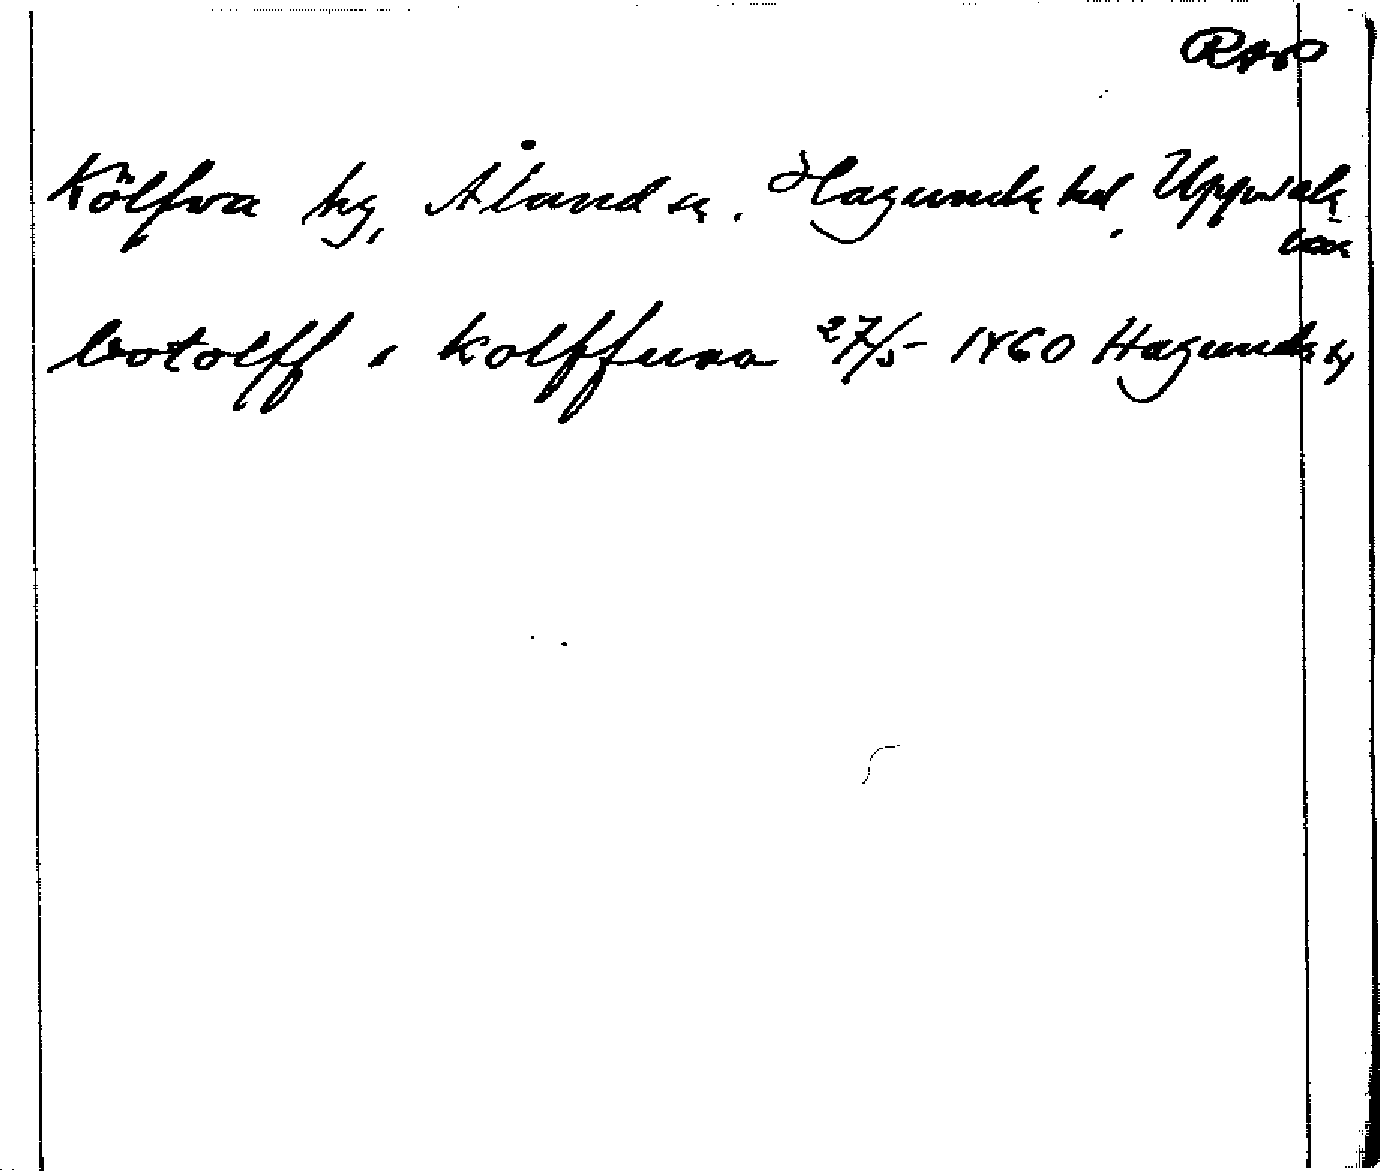 RAp
Kölfva by, Ålands sn. Hagunda hd. Uppsala
län
botolff i kolffwa 27/5 1460 Hagunda